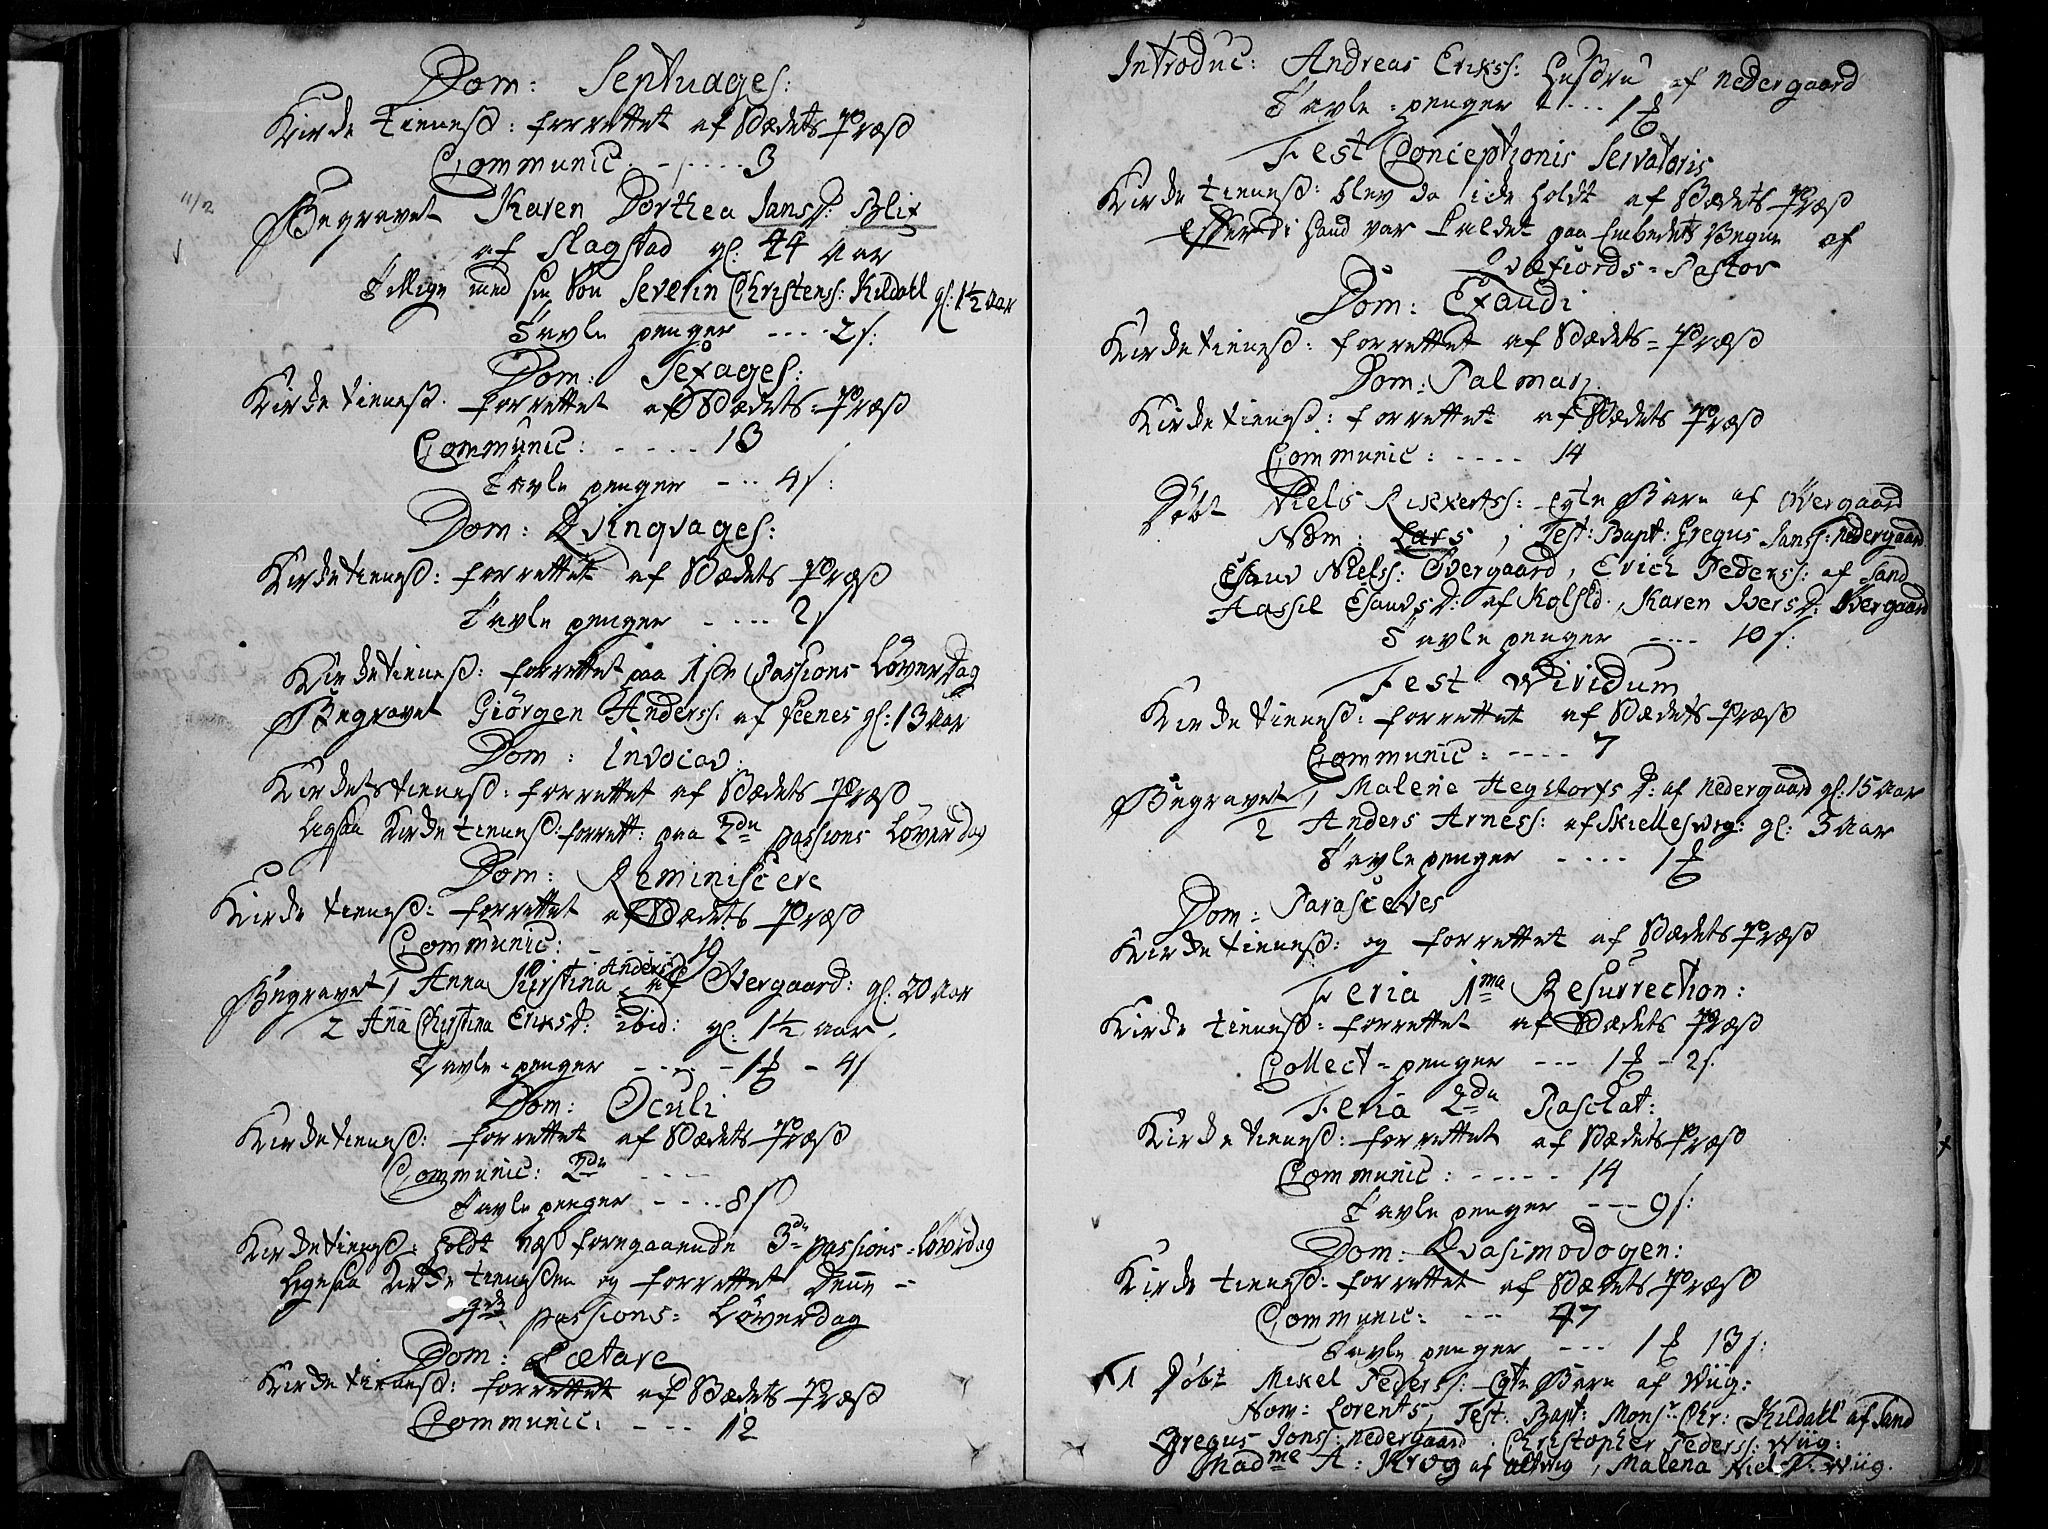 Dom: Septuages:
Kircke tienest: forrettet af Stædets Præst
Communic: - - - - - 3
11/2
Begravet Karen Dorthea Jansd: Blix
af Slagstad gl: 44 aar
Tillige med sin Søn Severin Christens: Kildahl gl: 1½ aar
Tavle penger - - - - 2 s:
Dom: Sexages:
Kircke tienest: forrettet af Stædets Præst
Communic: - - - - - 13
Tavle penger - - - 4 s:
Dom: Qvinqvages:
Kircke tienest: forrettet af Stædets Præst
Tavle penger - - - - 2 s
Kircke tienest: forrettet paa 1ste Passions Løverdag
Begravet Giörgen Anderss: af Steenes gl: 13 aar
Dom: Invocav:
Kirckets tienest: forrettet af Stædets Præst
ligesaa Kircke tienest: forrett: paa 2de passions Løverdag
Dom: Reminiscere
Kircke tienest: forrettet af Stædets Præst
Communic: - - - - - 19
Begravet 1 Anna Kirstina Andersd af Overgaard: gl: 20 aar
2 Ana Christina Eriksd: ibid: gl: 1½ aar
Tavle-penger - - - - 1 ₻ - 4 s
Dom: Oculi
Kircke tienest: forrettet af Stædets Præst
Communic: 2de - - - -
Tavle penger - - - - 8 s
Kircke tienest: holdt næst forregaaende 3de passions-Løverdag
ligesaa Kircke tienesten og forrettet denne
4de passions-Løverdag
Dom: Lætare
Kircke tienest: forrettet af Stædets Præst
Communic: - - - 12
Introduc: Andreas Erikss: Hustrue af nedergaard
Tavle-penger - - - - 1 ₻
Fest Conceptionis Servatoris
Kircke tienest: blev da icke holdt af Stædets Præst
efterdi hand var kaldet paa Embedets Vegne af
Qvæfiords-Pastor
Dom: Exaudi
Kircke tienest: forrettet af Stædets-Præst
Dom: Palmar:
Kircke tienest: forrettet af Stædets Præst
Communic: - - - - 14
Døbt Niels Rikkertss: Egte Barn af Overgaard
Nom: Lars, Test: Bapt: Gregus Janss: nedergaard
Esauv Nielss: Overgaard, Erich Pederss: af Sand
Aassil Esauvsd: af Kolsld:, Karen Iversd: Overgaard
Tavle penger - - - - 10 s:
Fest Wiridum
Kircke tienest: forrettet af Stædets Præst
Communic: - - - - 7
Begravet 1 Malene Hegstorfs D: af nedergaard gl: 15 aar
2 Anders Arness: af Skiellesvig: gl: 3 aar
Tavle penger - - - - 1 ₻
Dom: Parasceves
Kircke tienest: og forrettet af Stædets Præst
Feria 1ma Resurrection:
Kircke tienest: forrettet af Stædets Præst
Collect-penger - - - 1 ₻ - 2 s:
Feria 2da Paschat:
Kircke tienest: forrettet af Stædets Præst
Communic: - - - - - 14
Tavle penger - - - 9 s:
Dom: Qvasimodogen:
Kircke tienest: forrettet af Stædets Præst
Communic: - - - 47
Tavle penger - - - 1 ₻ 13 s:
1 Døbt Mikel Pederss: Egte Barn af Wiig:
Nom: Lorents, Test: Bapt: Monsr: Chr: Kildahl af Sand
Gregus Jonss: nedergaard, Christopher Pederss: Wiig:
Madme A: Krog af Altevig, Malena Niels D: Wiig.